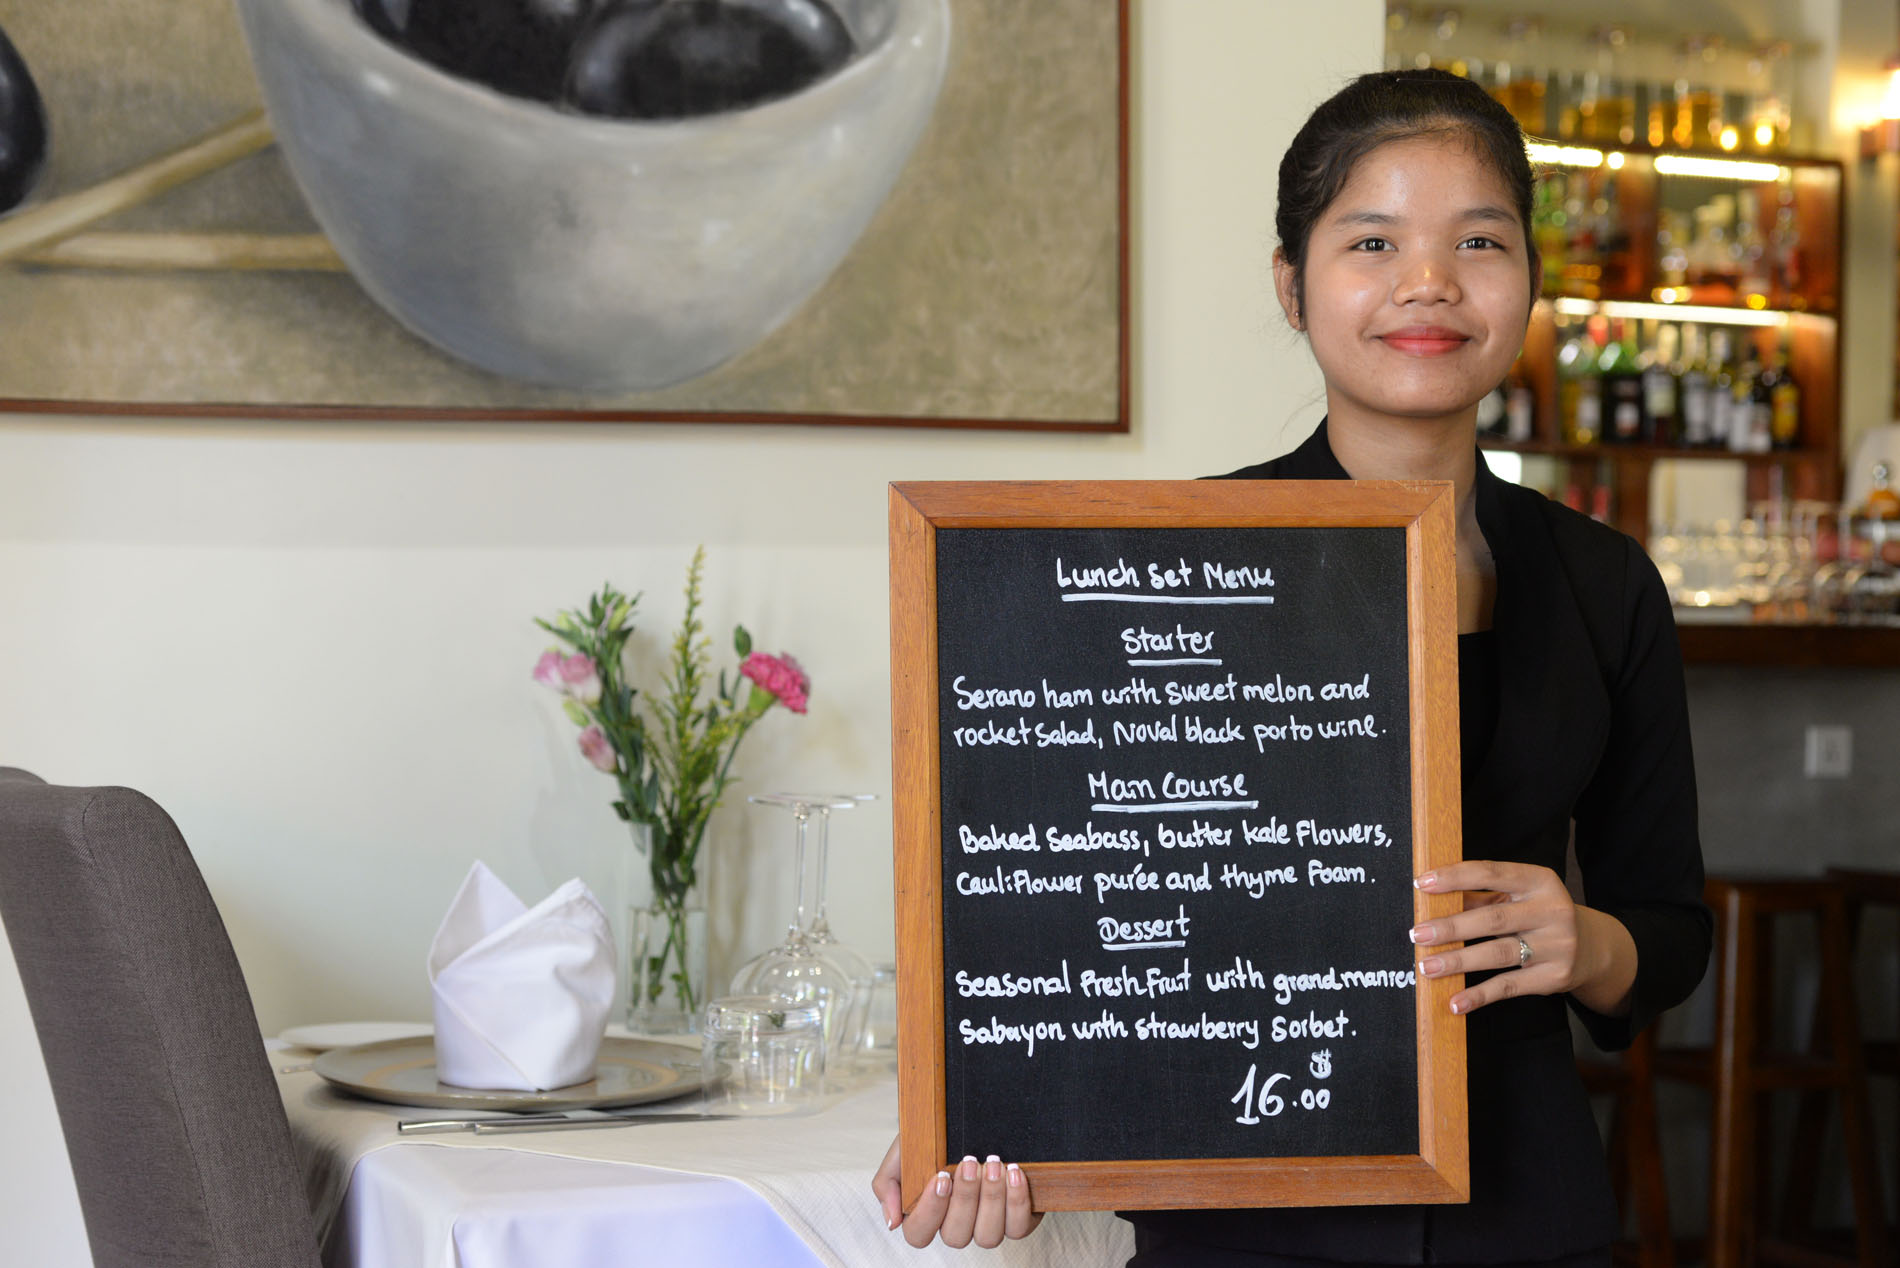 Lunch Set Menu
Starter
Serano ham with sweet melon and
rocket Salad, Noval black porto wine.
Main Course
Baked Seabass, butter kale Flowers,
Cauliflower purée and thyme Foam.
Dessert
Seasonal Fresh Fruit with grand
Sabayon with strawberry Sorbet.
$
16.00